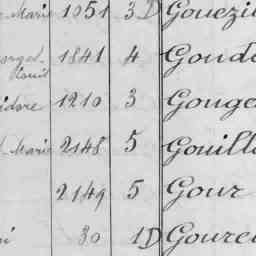 Marie 1051 3 D Gouezi
1841 4 Goud
idore 1210 3 Gouge
Marie 2148 5 Gouill
2149 5 Gour
30 1 D Goure